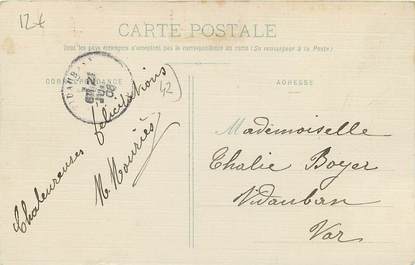 12€
CARTE POSTALE
Tous les pays étrangers n'acceptent pas la correspondance au recto (Se renseigner à la Poste)
CORRESPONDANCE
ADRESSE
VIDAUBAN
21
08
42
Chaleureuses félicitations
M Mouriès
Mademoiselle
Thalie Boyer
Vidauban
Var